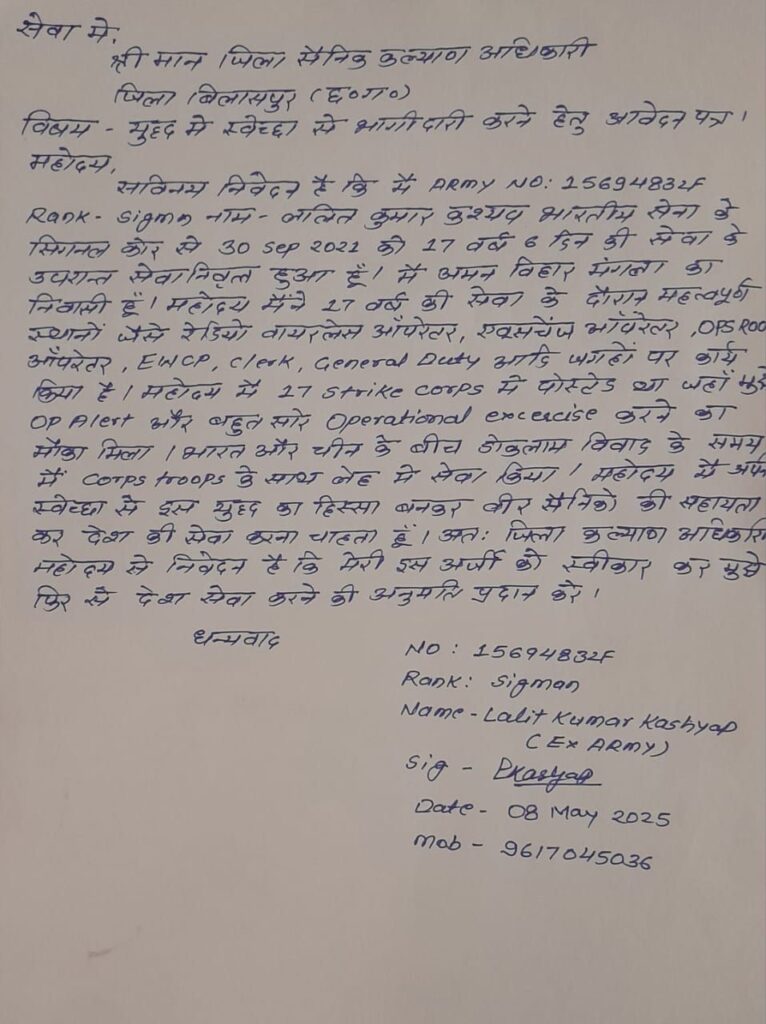 सेवा मे,
श्री मान जिला सैनिक कल्याण अधिकारी
जिला बिलासपुर (छ०ग०)
विषय - युद्ध मे स्वेच्छा से भागीदारी करने हेतु आवेदन पत्र ।
महोदय,
सविनय निवेदन है कि मै ARMY NO: 15694832F
Rank- Sigmn नाम - ललित कुमार कश्यप भारतीय सेना के
सिगनल कोर से 30 Sep 2021 को 17 वर्ष 6 दिन की सेवा के
उपरान्त सेवानिवृत्त हुआ हूँ। मै अमन विहार मंगला का
निवासी हूँ। महोदय मैंने 17 वर्ष की सेवा के दौरान महत्वपूर्ण
स्थानों जैसे रेडियो वायरलेस ऑपरेटर, एक्सचेंज ऑपरेटर, OPS ROO
ऑपरेटर, EWCP, Clerk, General Duty आदि जगहों पर कार्य
किया है। महोदय मै 17 Strike Corps मे पोस्टेड था जहाँ मुझे
OP Alert और बहुत सारे Operational excercise करने का
मौका मिला । भारत और चीन के बीच डोकलाम विवाद के समय
मैं Corps troops के साथ लेह मे सेवा किया । महोदय मै अपन
स्वेच्छा से इस युद्ध का हिस्सा बनकर वीर सैनिको की सहायता
कर देश की सेवा करना चाहता हूँ । अतः जिला कल्याण अधिकारी
महोदय से निवेदन है कि मेरी इस अर्जी को स्वीकार कर मुझे
फिर से देश सेवा करने की अनुमति प्रदान करे ।
धन्यवाद
NO : 15694832F
Rank: Sigman
Name - Lalit Kumar Kashyap
(Ex ARMY)
Sig - Lkashyap
Date - 08 May 2025
Mob - 9617045036